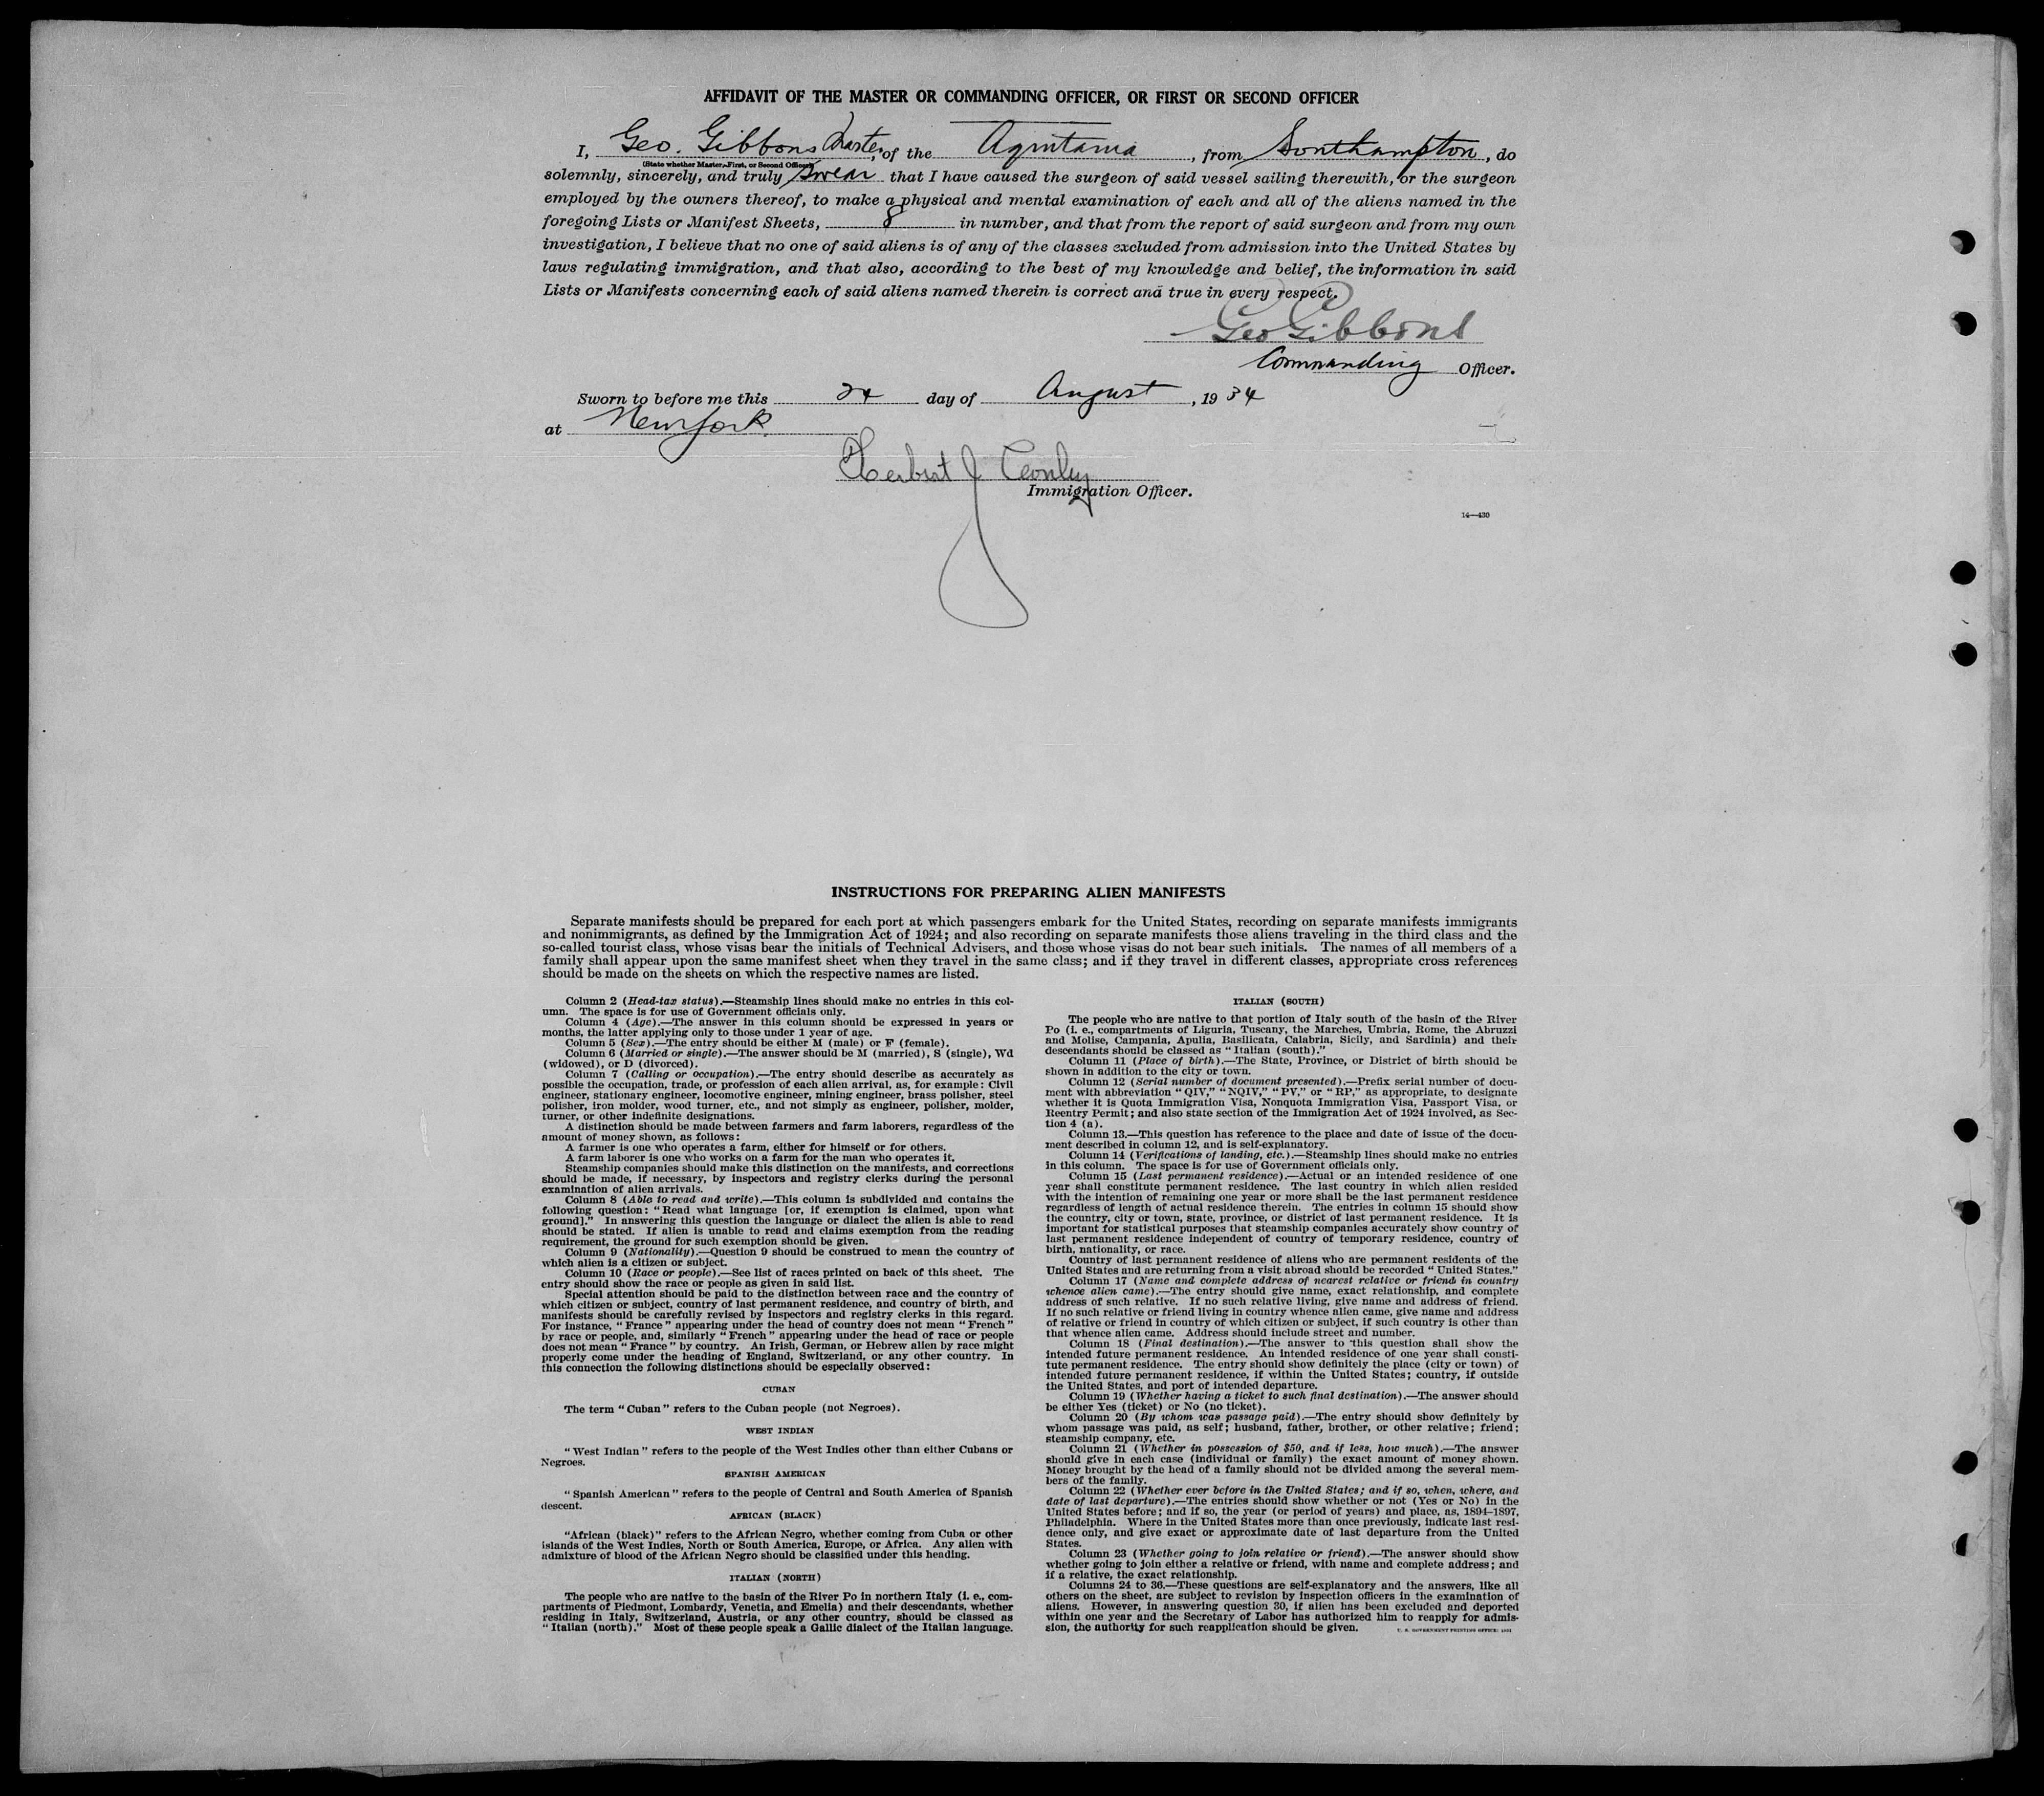 AFFIDAVIT OF THE MASTER OR COMMANDING OFFICER, OR FIRST OR SECOND OFFICER
I, Geo. Gibbons Master, of the Aquitania, from Southampton, do
(State whether Master, First, or Second Officer)
solemnly, sincerely, and truly swear that I have caused the surgeon of said vessel sailing therewith, or the surgeon
employed by the owners thereof, to make a physical and mental examination of each and all of the aliens named in the
foregoing Lists or Manifest Sheets, 8 in number, and that from the report of said surgeon and from my own
investigation, I believe that no one of said aliens is of any of the classes excluded from admission into the United States by
laws regulating immigration, and that also, according to the best of my knowledge and belief, the information in said
Lists or Manifests concerning each of said aliens named therein is correct and true in every respect.
Geo Gibbons
Commanding Officer.
Sworn to before me this 24 day of August, 1934
at New York
Herbert J Conley
Immigration Officer.
14—430
INSTRUCTIONS FOR PREPARING ALIEN MANIFESTS
Separate manifests should be prepared for each port at which passengers embark for the United States, recording on separate manifests immigrants
and nonimmigrants, as defined by the Immigration Act of 1924; and also recording on separate manifests those aliens traveling in the third class and the
so-called tourist class, whose visas bear the initials of Technical Advisers, and those whose visas do not bear such initials. The names of all members of a
family shall appear upon the same manifest sheet when they travel in the same class; and if they travel in different classes, appropriate cross references
should be made on the sheets on which the respective names are listed.
Column 2 (Head-tax status).—Steamship lines should make no entries in this col-
umn. The space is for use of Government officials only.
Column 4 (Age).—The answer in this column should be expressed in years or
months, the latter applying only to those under 1 year of age.
Column 5 (Sex).—The entry should be either M (male) or F (female).
Column 6 (Married or single).—The answer should be M (married), S (single), Wd
(widowed), or D (divorced).
Column 7 (Calling or occupation).—The entry should describe as accurately as
possible the occupation, trade, or profession of each alien arrival, as, for example: Civil
engineer, stationary engineer, locomotive engineer, mining engineer, brass polisher, steel
polisher, iron molder, wood turner, etc., and not simply as engineer, polisher, molder,
turner, or other indefinite designations.
A distinction should be made between farmers and farm laborers, regardless of the
amount of money shown, as follows:
A farmer is one who operates a farm, either for himself or for others.
A farm laborer is one who works on a farm for the man who operates it.
Steamship companies should make this distinction on the manifests, and corrections
should be made, if necessary, by inspectors and registry clerks during the personal
examination of alien arrivals.
Column 8 (Able to read and write).—This column is subdivided and contains the
following question: "Read what language [or, if exemption is claimed, upon what
ground]." In answering this question the language or dialect the alien is able to read
should be stated. If alien is unable to read and claims exemption from the reading
requirement, the ground for such exemption should be given.
Column 9 (Nationality).—Question 9 should be construed to mean the country of
which alien is a citizen or subject.
Column 10 (Race or people).—See list of races printed on back of this sheet. The
entry should show the race or people as given in said list.
Special attention should be paid to the distinction between race and the country of
which citizen or subject, country of last permanent residence, and country of birth, and
manifests should be carefully revised by inspectors and registry clerks in this regard.
For instance, "France" appearing under the head of country does not mean "French"
by race or people, and, similarly "French" appearing under the head of race or people
does not mean "France" by country. An Irish, German, or Hebrew alien by race might
properly come under the heading of England, Switzerland, or any other country. In
this connection the following distinctions should be especially observed:
CUBAN
The term "Cuban" refers to the Cuban people (not Negroes).
WEST INDIAN
"West Indian" refers to the people of the West Indies other than either Cubans or
Negroes.
SPANISH AMERICAN
"Spanish American" refers to the people of Central and South America of Spanish
descent.
AFRICAN (BLACK)
"African (black)" refers to the African Negro, whether coming from Cuba or other
islands of the West Indies, North or South America, Europe, or Africa. Any alien with
admixture of blood of the African Negro should be classified under this heading.
ITALIAN (NORTH)
The people who are native to the basin of the River Po in northern Italy (i. e., com-
partments of Piedmont, Lombardy, Venetia, and Emelia) and their descendants, whether
residing in Italy, Switzerland, Austria, or any other country, should be classed as
"Italian (north)." Most of these people speak a Gallic dialect of the Italian language.
ITALIAN (SOUTH)
The people who are native to that portion of Italy south of the basin of the River
Po (i. e., compartments of Liguria, Tuscany, the Marches, Umbria, Rome, the Abruzzi
and Molise, Campania, Apulia, Basilicata, Calabria, Sicily, and Sardinia) and their
descendants should be classed as "Italian (south)."
Column 11 (Place of birth).—The State, Province, or District of birth should be
shown in addition to the city or town.
Column 12 (Serial number of document presented).—Prefix serial number of docu-
ment with abbreviation "QIV," "NQIV," "PV," or "RP," as appropriate, to designate
whether it is Quota Immigration Visa, Nonquota Immigration Visa, Passport Visa, or
Reentry Permit; and also state section of the Immigration Act of 1924 involved, as Sec-
tion 4 (a).
Column 13.—This question has reference to the place and date of issue of the docu-
ment described in column 12, and is self-explanatory.
Column 14 (Verifications of landing, etc.).—Steamship lines should make no entries
in this column. The space is for use of Government officials only.
Column 15 (Last permanent residence).—Actual or an intended residence of one
year shall constitute permanent residence. The last country in which alien resided
with the intention of remaining one year or more shall be the last permanent residence
regardless of length of actual residence therein. The entries in column 15 should show
the country, city or town, state, province, or district of last permanent residence. It is
important for statistical purposes that steamship companies accurately show country of
last permanent residence independent of country of temporary residence, country of
birth, nationality, or race.
Country of last permanent residence of aliens who are permanent residents of the
United States and are returning from a visit abroad should be recorded "United States."
Column 17 (Name and complete address of nearest relative or friend in country
whence alien came).—The entry should give name, exact relationship, and complete
address of such relative. If no such relative living, give name and address of friend.
If no such relative or friend living in country whence alien came, give name and address
of relative or friend in country of which citizen or subject, if such country is other than
that whence alien came. Address should include street and number.
Column 18 (Final destination).—The answer to this question shall show the
intended future permanent residence. An intended residence of one year shall consti-
tute permanent residence. The entry should show definitely the place (city or town) of
intended future permanent residence, if within the United States; country, if outside
the United States, and port of intended departure.
Column 19 (Whether having a ticket to such final destination).—The answer should
be either Yes (ticket) or No (no ticket).
Column 20 (By whom was passage paid).—The entry should show definitely by
whom passage was paid, as self; husband, father, brother, or other relative; friend;
steamship company, etc.
Column 21 (Whether in possession of $50, and if less, how much).—The answer
should give in each case (individual or family) the exact amount of money shown.
Money brought by the head of a family should not be divided among the several mem-
bers of the family.
Column 22 (Whether ever before in the United States; and if so, when, where, and
date of last departure).—The entries should show whether or not (Yes or No) in the
United States before; and if so, the year (or period of years) and place, as, 1894-1897,
Philadelphia. Where in the United States more than once previously, indicate last resi-
dence only, and give exact or approximate date of last departure from the United
States.
Column 23 (Whether going to join relative or friend).—The answer should show
whether going to join either a relative or friend, with name and complete address; and
if a relative, the exact relationship.
Columns 24 to 36.—These questions are self-explanatory and the answers, like all
others on the sheet, are subject to revision by inspection officers in the examination of
aliens. However, in answering question 30, if alien has been excluded and deported
within one year and the Secretary of Labor has authorized him to reapply for admis-
sion, the authority for such reapplication should be given.
U. S. GOVERNMENT PRINTING OFFICE: 1931